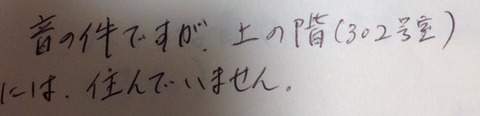 音の件ですが、上の階(302号室)
には、住んでいません。